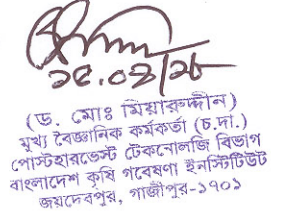 ১৫.০২/১৮
(ড. মোঃ মিয়ারুদ্দীন)
মুখ্য বৈজ্ঞানিক কর্মকর্তা (চ.দা.)
পোস্টহারভেস্ট টেকনোলজি বিভাগ
বাংলাদেশ কৃষি গবেষণা ইনস্টিটিউট
জয়দেবপুর, গাজীপুর-১৭০১